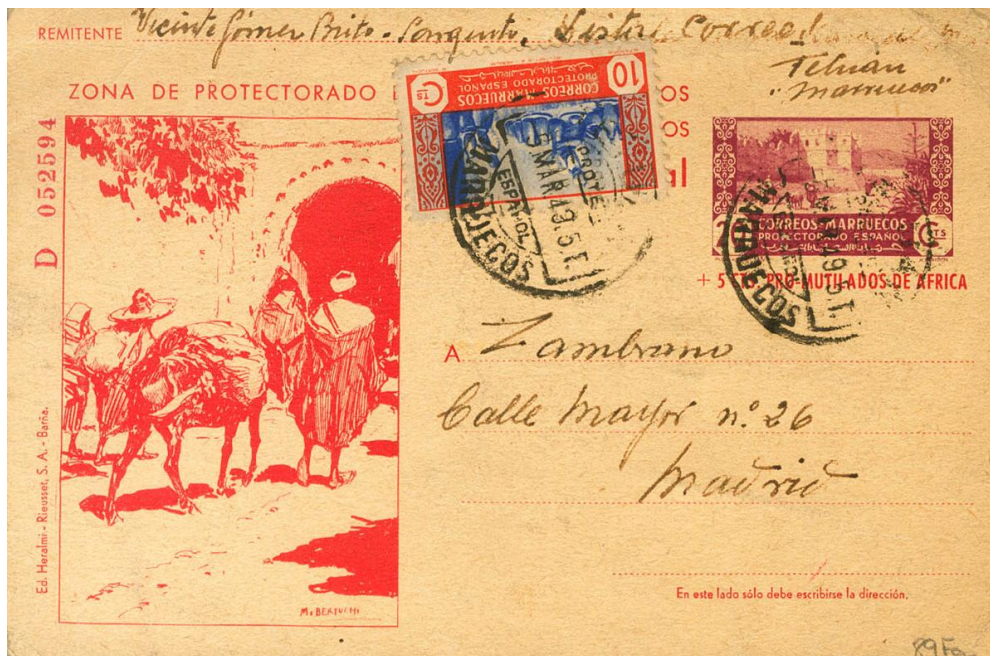 REMITENTE Vicente Gómez Brito - Sargento, Lista Correo
Tetuán
"Marruecos"
ZONA DE PROTECTORADO
OS
OS
al
D 052594
10
Cts
CORREOS-MARRUECOS
PROTECTORADO ESPAÑOL
5 MAR 49. 5 T.
ESPAÑOL
MARRUECOS
CORREOS-MARRUECOS
PROTECTORADO ESPAÑOL
CTS
MARRUECOS
+ 5 CTS. PRO-MUTILADOS DE AFRICA
A Zambrano
Calle Mayor nº 26
Madrid
En este lado sólo debe escribirse la dirección.
M. BERTUCHI
Ed. Heralmi - Rieusset, S. A. - Barña.